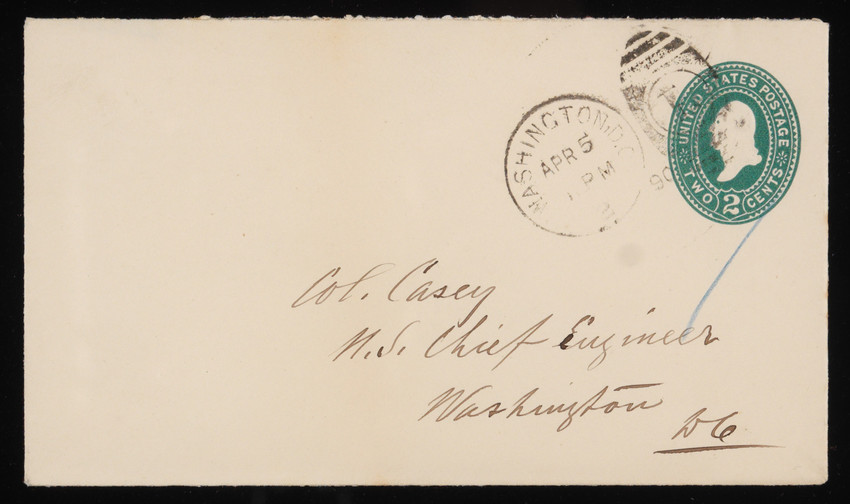 WASHINGTON, D.C.
APR 5
PM
90
UNITED STATES POSTAGE
TWO 2 CENTS
Col. Casey
U.S. Chief Engineer
Washington
DC